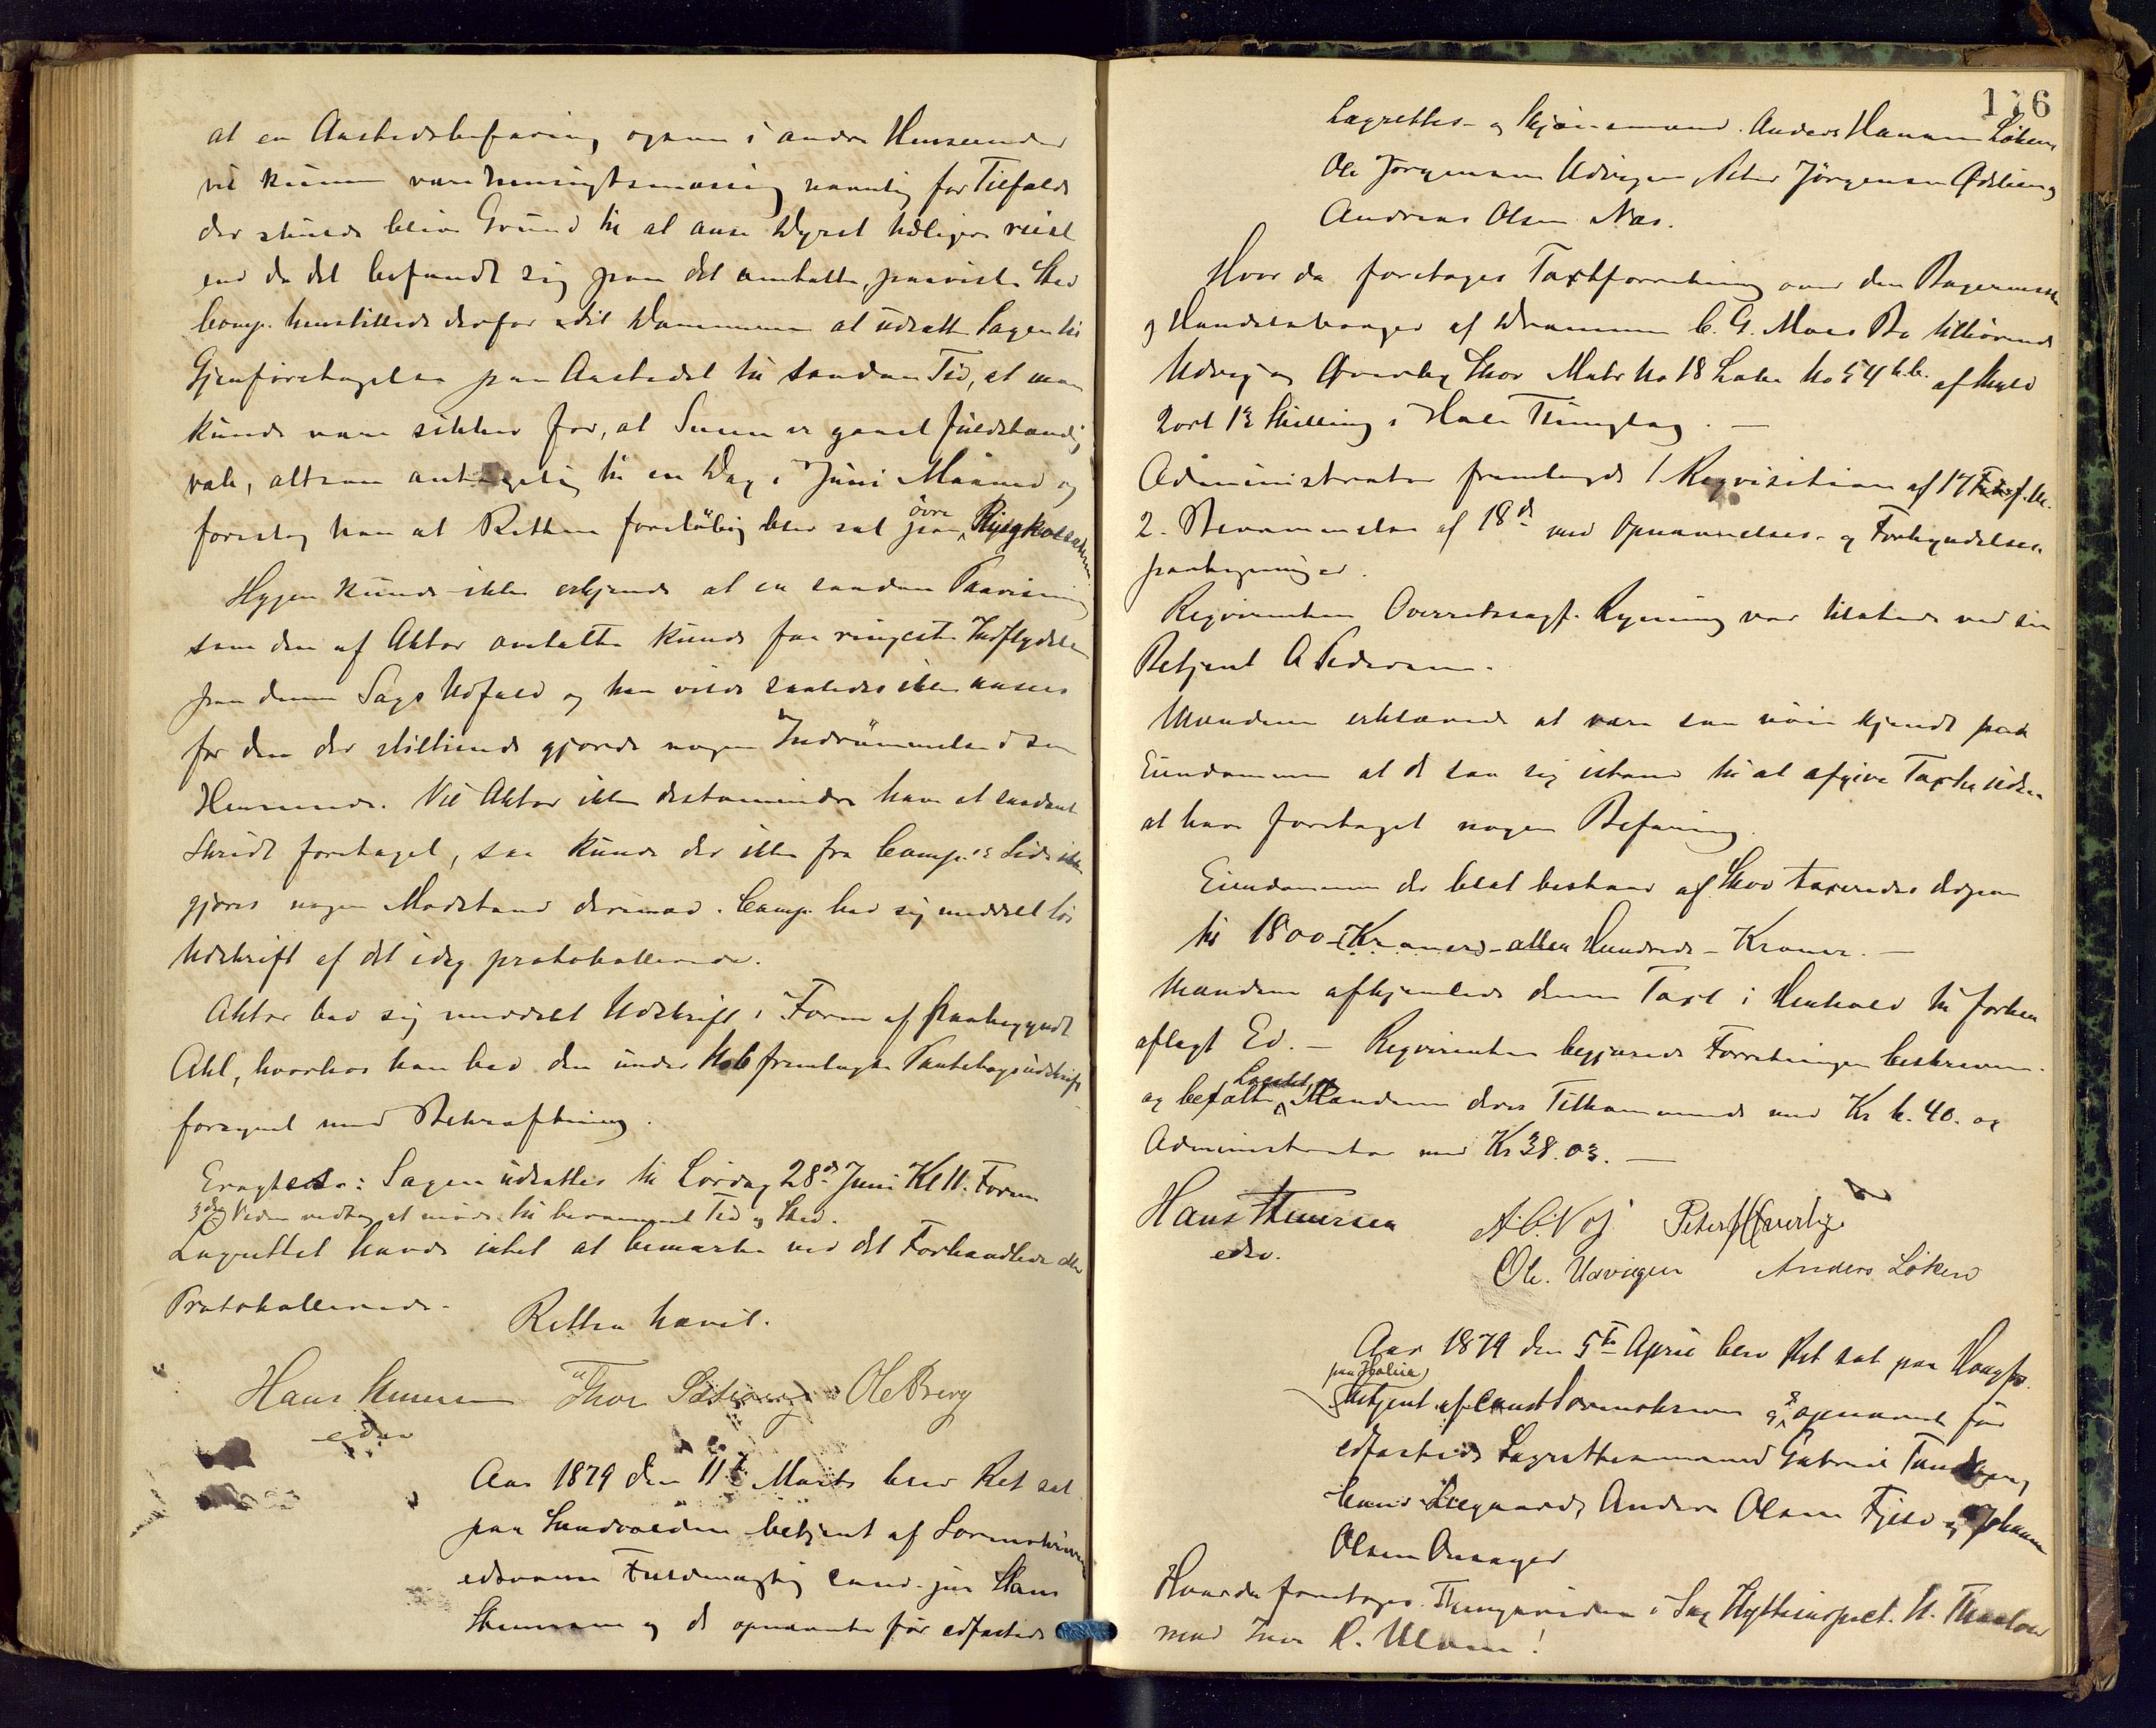 at en Aastedsbefaring ogsaa i andre Henseender
vil kunne være hensigtsmæssig navnlig for Tilfælde
der skulde blive Grund til at anse Dyret tidligere reist
end da det befandt sig paa det omtalte, paaviste Sted
Comp. henstillede derfor at udsætte Sagen til
Gjenforetagelse paa Aastedet til saadan Tid, at man
kunde være sikker for, at Sneen er gaaet fuldstændig
væk, altsaa antagelig til en Dag i Juni Maaned og
foreslog han at Retten foreløbig blev sat paa øvre
Hygen kunde ikke erkjende at en saadan Paavisning
som den af Aktor omtalte kunde faa ringeste Indflydelse
paa denne Sags Udfald og han vilde saaledes ikke ansees
for den der stiltiende gjorde nogen Indrømmelse i saa
Henseende. Vil Aktor ikke destomindre have et saadant
Skridt foretaget, saa kunde der ikke fra Comp.s Side
gjøres nogen Modstand derimod. Comp. bad sig meddelt
Udskrift af det idag protokollerede.
Aktor bad sig meddelt Udskrift i Form af paabegyndt
Akt, hvorhos han bad den under No 6 fremlagte Pantebogsudskrift
forsynet med Bekræftning.
Eragtedes: Sagen udsættes til Lørdag 28de Juni Kl 11. Form
3die Vidne vedtog at møde til berammet Tid og Sted.
Lagrettet havde intet at bemærke ved det Forhandlede eller
Protokollerede.
Retten hævet.
Hans Thuersen Thor Ole Berg
edsv
Aar 1879 den 11te Marts blev Ret sat
paa Sundvolden betjent af Sorenskriverens
edsvorne Fuldmægtig cand. jur Hans
og de opnævnte før edfæstede
176
Lagrettes- og Skjønsmænd. Anders Hansen Løken,
Ole Jørgensen Udvigen, Peter Jørgensen og
Andreas Olsen Næs.
Hvor da foretoges Taxtforretning over den Bagermester
og Handelsborger af Drammen C. G. Moes Bo tilhørende
Udvig og Øverby Skov Matr No 18 Løbe No 54 af Skyld
2 ort 13 Skilling i Hole Thinglag. —
Administrator fremlagde 1 Reqvisition af 17
2. Berammelse af 18de med Opnævnelses- og Forkyndelses-
paategninger.
Reqvirenten Overretssagf. Rynning var tilstede ved sin
Betjent A Pedersen.
Mændene erklærede at være saa nøie kjendt paa
Eiendommen at de saa sig istand til at afgive Taxten uden
at have foretaget nogen Befaring.
Eiendommen der blot bestaar af Skov taxeredes derpaa
til 1800 - Kroner - atten Hundrede - Kroner. —
Mændene afhjemlede denne Taxt i Henhold til forhen
aflagt Ed. — Reqvirenten begjærede Forretningen beskreven
og betalte Mændene deres Tilkommende med Kr 40. og
Administrator med Kr 38.03. —
Hans Thuersen A. O. Næs Peter Øverby
edsv.
Ole. Udvigen Anders Løken
Aar 1879 den 5te April blev Ret sat paa
betjent af const Sorenskriver og opnævnt før
edfæstede Lagrettesmænd Gabriel Tandberg,
Anders Olsen Fjeld og Johannes
Olsen Onsager
Hvor da foretoges Thingsvidne i Sag Hytteinspect. H. Thaulow
mod Iver R. Ulven!